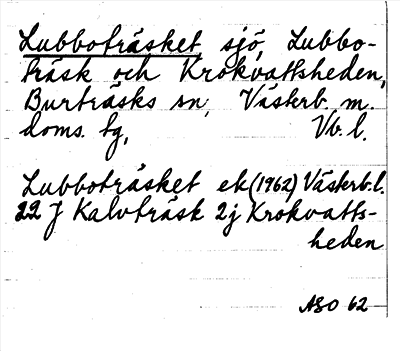 Lubboträsket sjö, Lubbo-
träsk och Krokvattsheden,
Burträsks sn, Västerb. m.
doms. tg, Vb. l.
Lubboträsket ek (1962) Västerb. l.
22 J Kalvträsk 2j Krokvatts-
heden
ASO 62